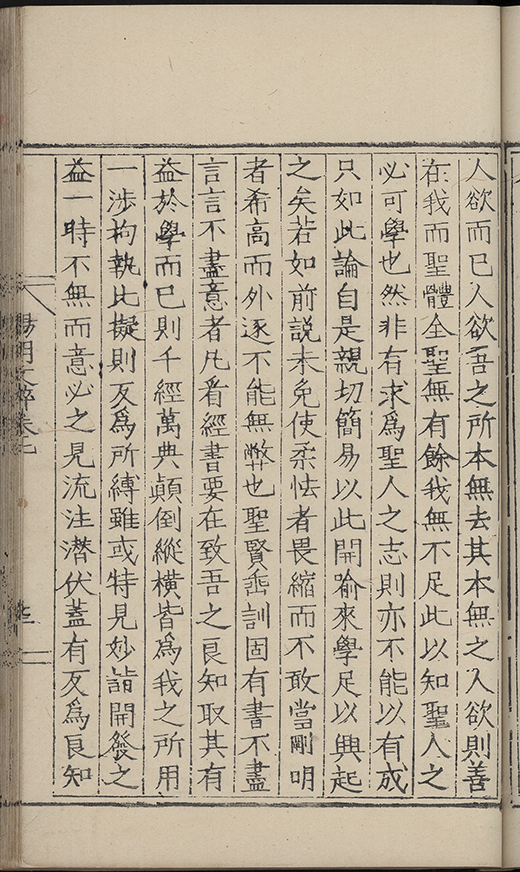 人欲而已人欲吾之所本無去其本無之人欲則善
在我而聖體全聖無有餘我無不足此以知聖人之
必可學也然非有求爲聖人之志則亦不能以有成
只如此論自是親切簡易以此開喻來學足以興起
之矣若如前説未免使柔怯者畏縮而不敢當剛明
者希高而外逐不能無弊也聖賢垂訓固有書不盡
言言不盡意者凡看經書要在致吾之良知取其有
益於學而已則千經萬典顛倒縱橫皆爲我之所用
一涉拘執比擬則反爲所縛雖或特見妙詣開發之
益一時不無而意必之見流注潛伏蓋有反爲良知
陽明文粹卷